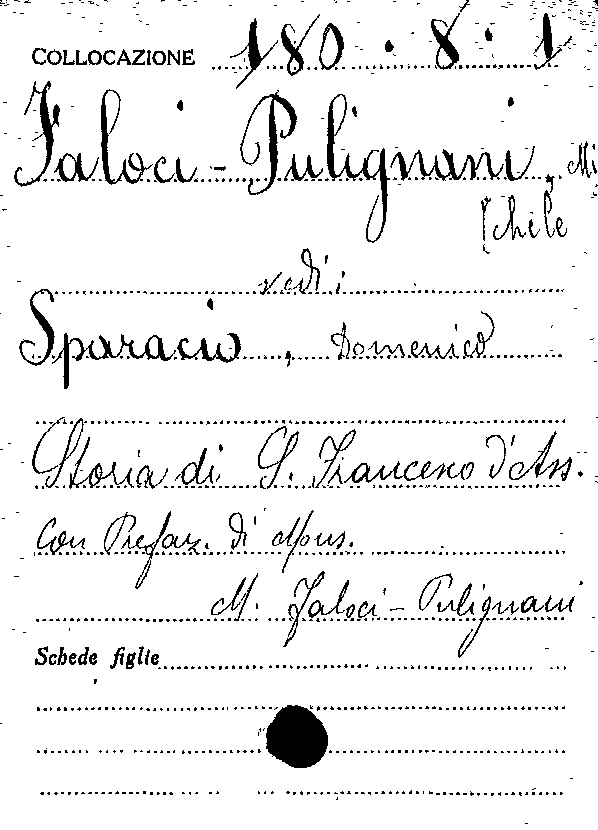 COLLOCAZIONE 180.8.1
Faloci-Pulignani, Mi
[chele
vedi:
Sparacio, Domenico
Storia di S. Francesco d'Ass.
Con Prefaz. di Mons.
M. Faloci-Pulignani
Schede figlie